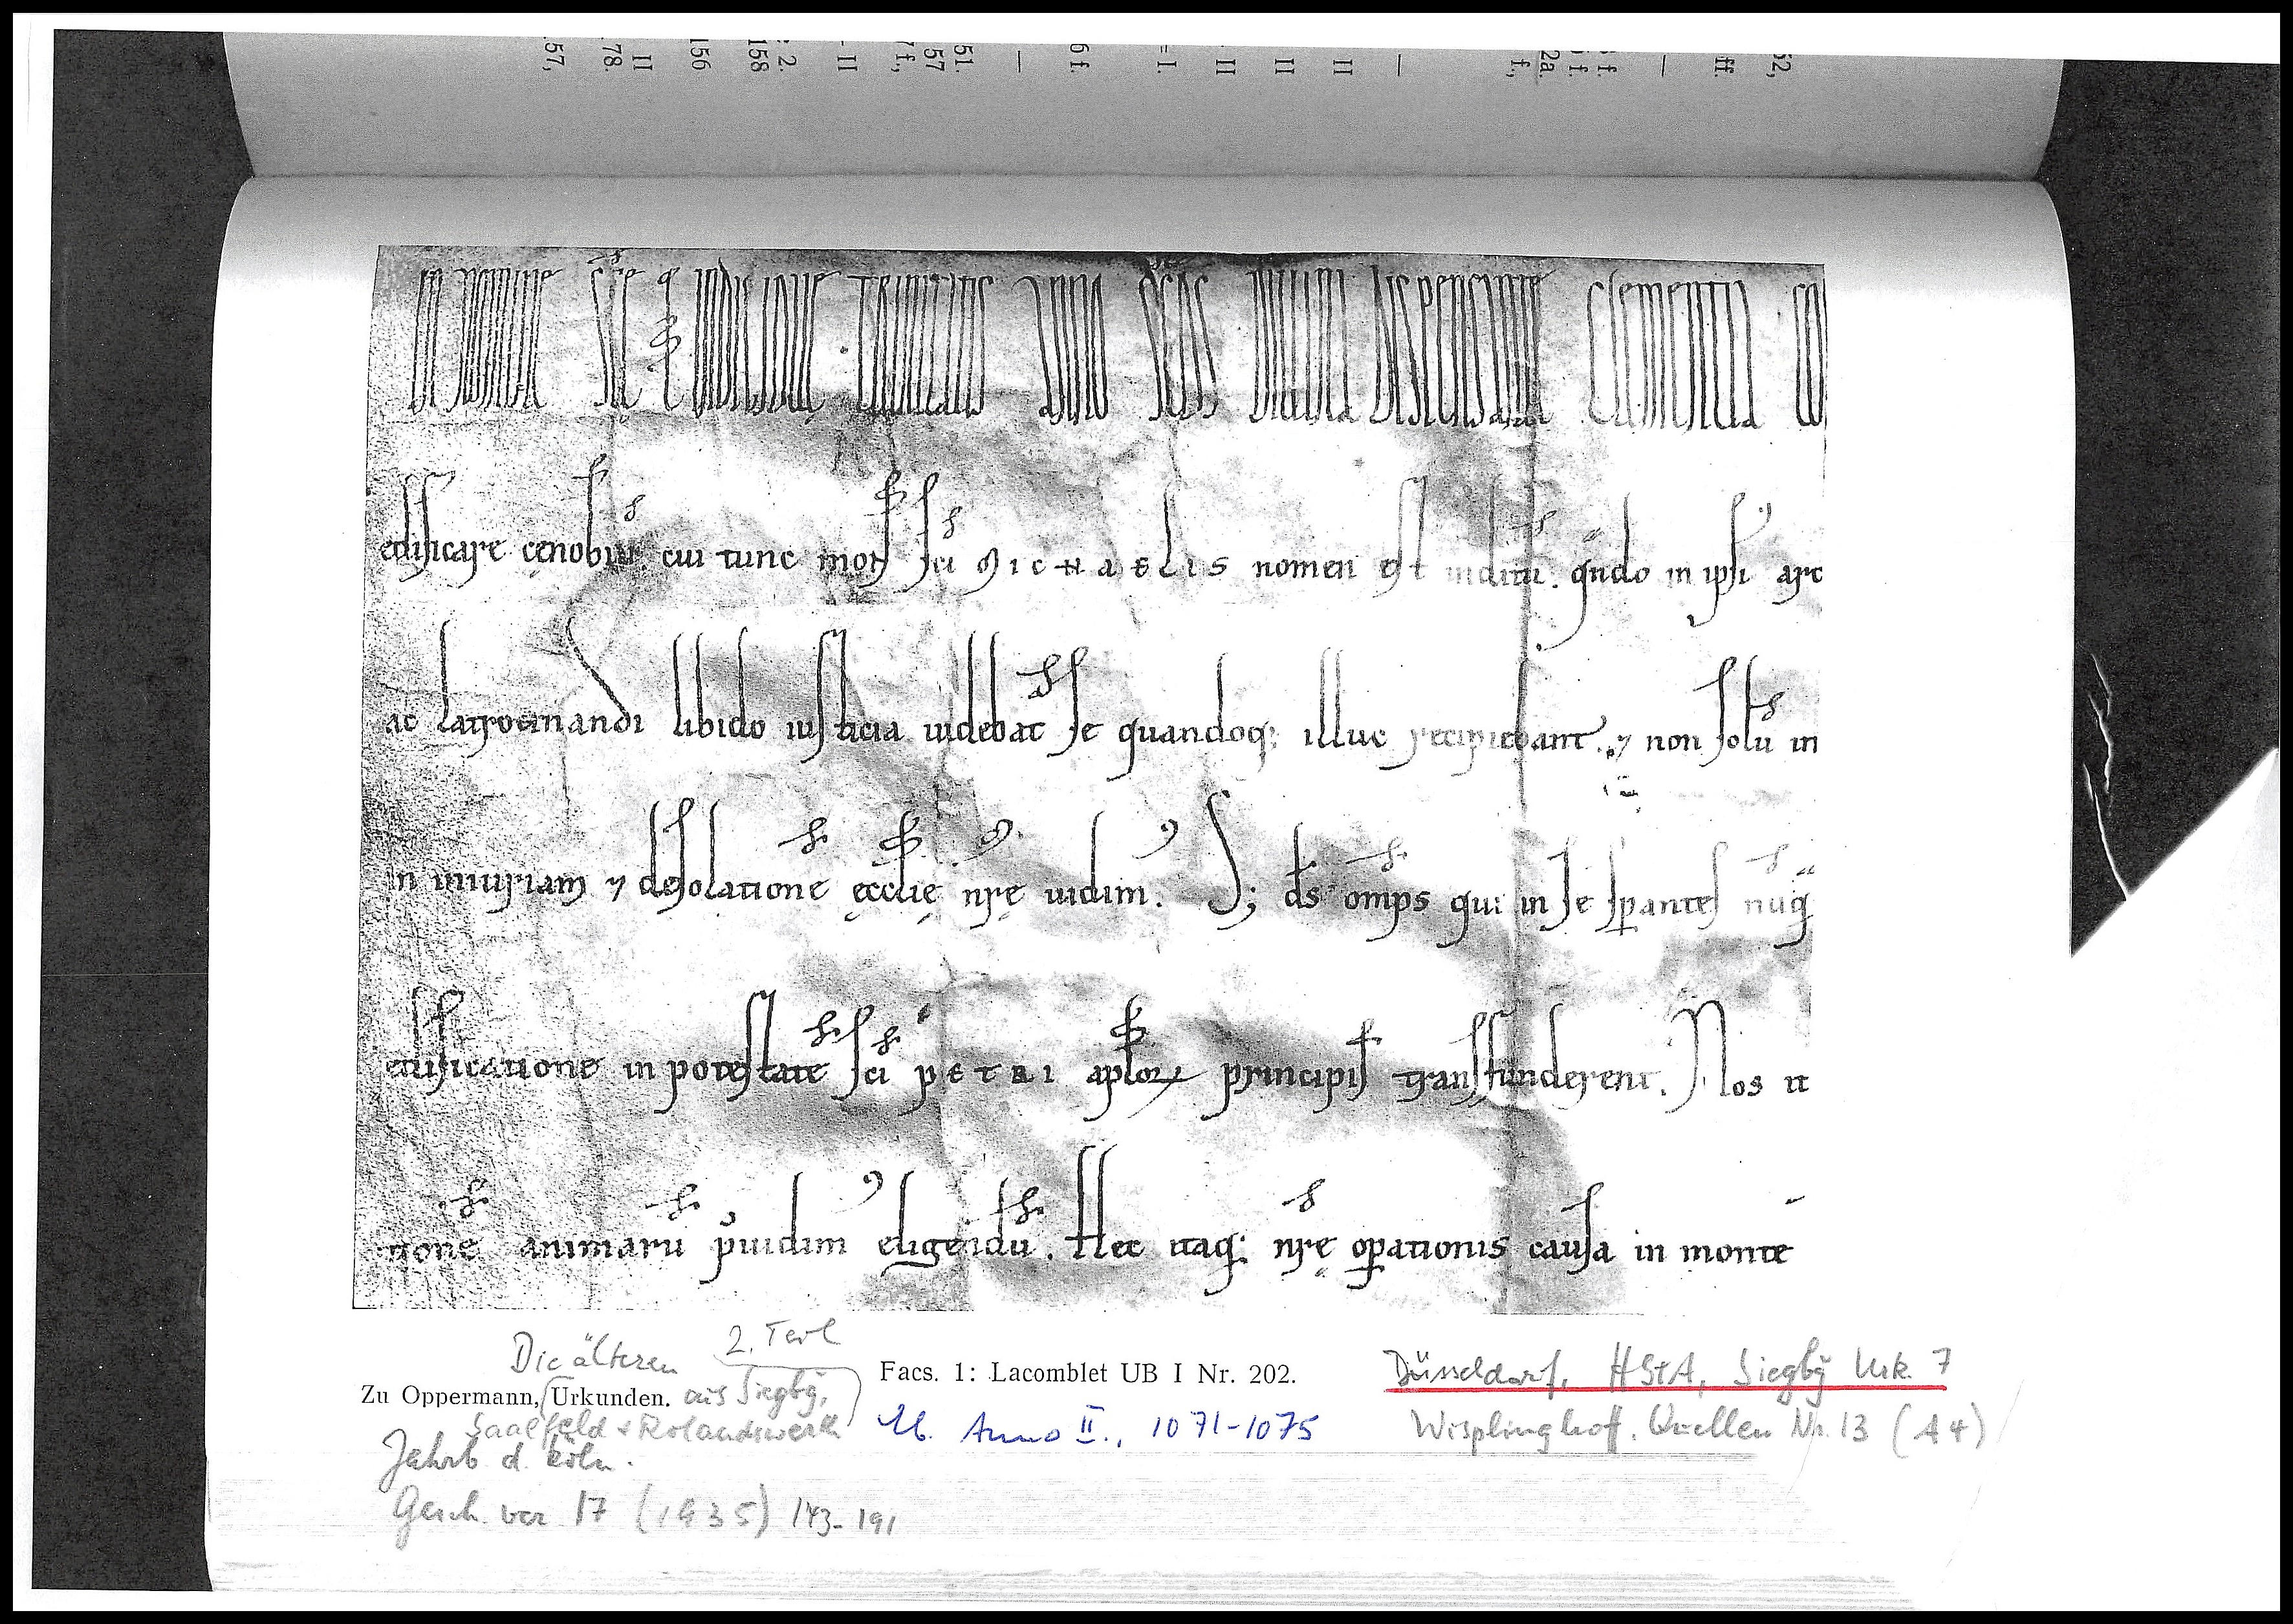 57, 78. II 156 158 2. - II 7 f., 57 51. — 6 f. = I. II II II — f., 2a. f. f. — ff. 52,
IN NOMINE SCE & INDIVIDUE TRINITATIS ANNO SCDS DIVINA DISPENSANTE CLEMENTIA CO
edificare cenobiū. cui tunc mons sci MICHAELIS nomen est inditū. qndo in ipsi arc
ac latrocinandi libido iusticia uidebat se quandoq; illuc recipiebant. ⁊ non solū in
in iniuriam ⁊ desolatione ęcclie nrę uidim. S; ds omps qui in se sperantes nuq
edificatione in potestate sci PETRI aploꝝ principis transfunderent. Nos it
tione animarū puidim eligendū. Hec itaq; nrę operationis causa in monte
Die älteren 2. Teil
Zu Oppermann, Urkunden. aus Siegbg,
Saalfeld + Rolandswerth
Jahrb. d. köln.
Gesch. ver. 17 (1935) 143-191
Facs. 1: Lacomblet UB I Nr. 202.
Eb. Anno II., 1071-1075
Düsseldorf, HStA, Siegbg Urk. 7
Wisplinghoff. Quellen Nr. 13 (A 4)